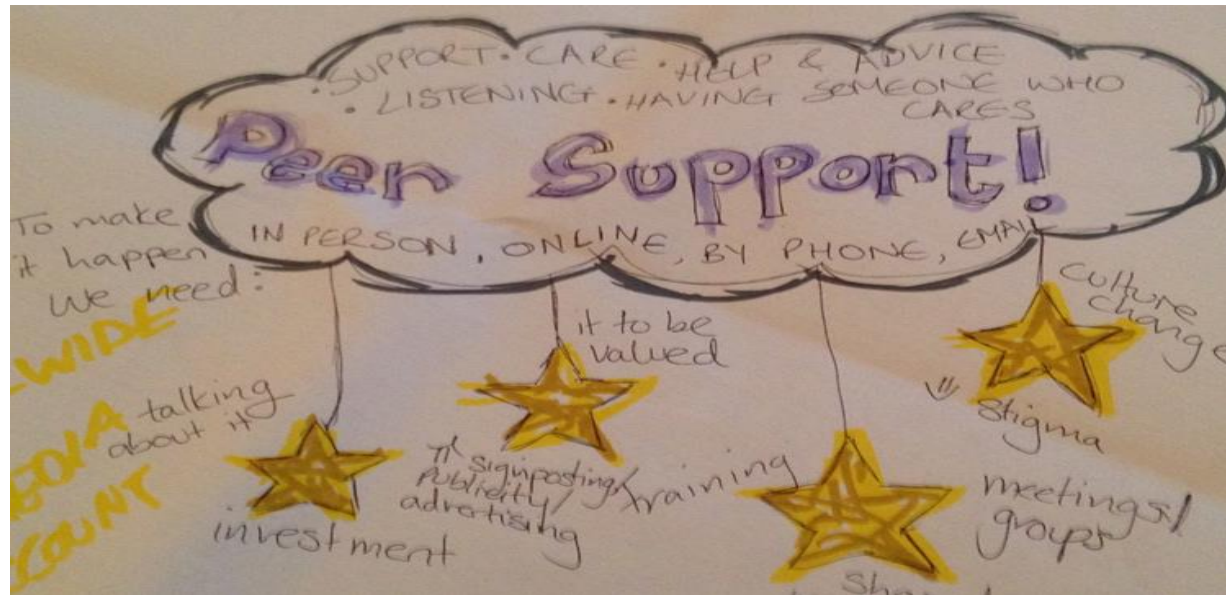 • SUPPORT • CARE • HELP & ADVICE
• LISTENING • HAVING SOMEONE WHO
CARES
Peer Support!
IN PERSON, ONLINE, BY PHONE, EMAIL
To make
it happen
we need:
WIDE
talking
about it
investment
it to be
valued
signposting/
Publicity/
advertising
training
culture
change
stigma
meetings/
groups